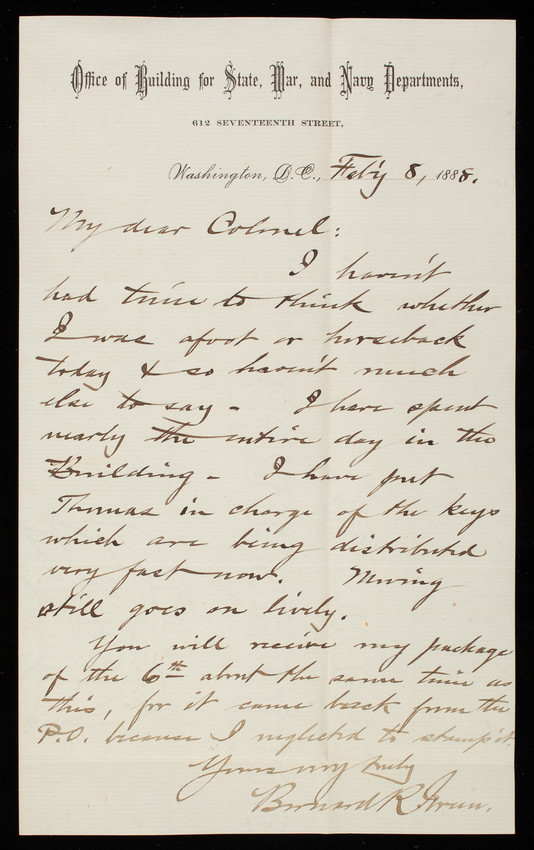 Office of Building for State, War, and Navy Departments,
612 SEVENTEENTH STREET,
Washington, D.C., Feb'y 8, 1888.
My dear Colonel:
I haven't
had time to think whether
I was afoot or horseback
today & so haven't much
else to say - I have spent
nearly the entire day in the
Building - I have put
Thomas in charge of the keys
which are being distributed
very fast now. Moving
still goes on lively.
You will receive my package
of the 6th about the same time as
this, for it came back from the
P.O. because I neglected to stamp it.
Yours very truly
Bernard R. Green.